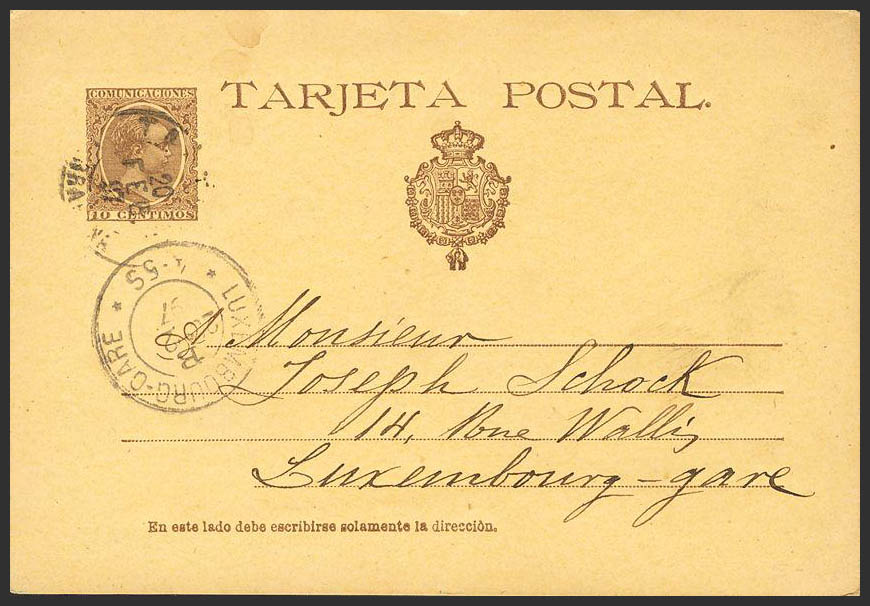 COMUNICACIONES
TARJETA POSTAL.
20 FEB
10 CENTIMOS
LUXEMBOURG-GARE
4-5S
97
A Monsieur
Joseph Schock
14, Rue Wallis
Luxembourg-gare
En este lado debe escribirse solamente la dirección.